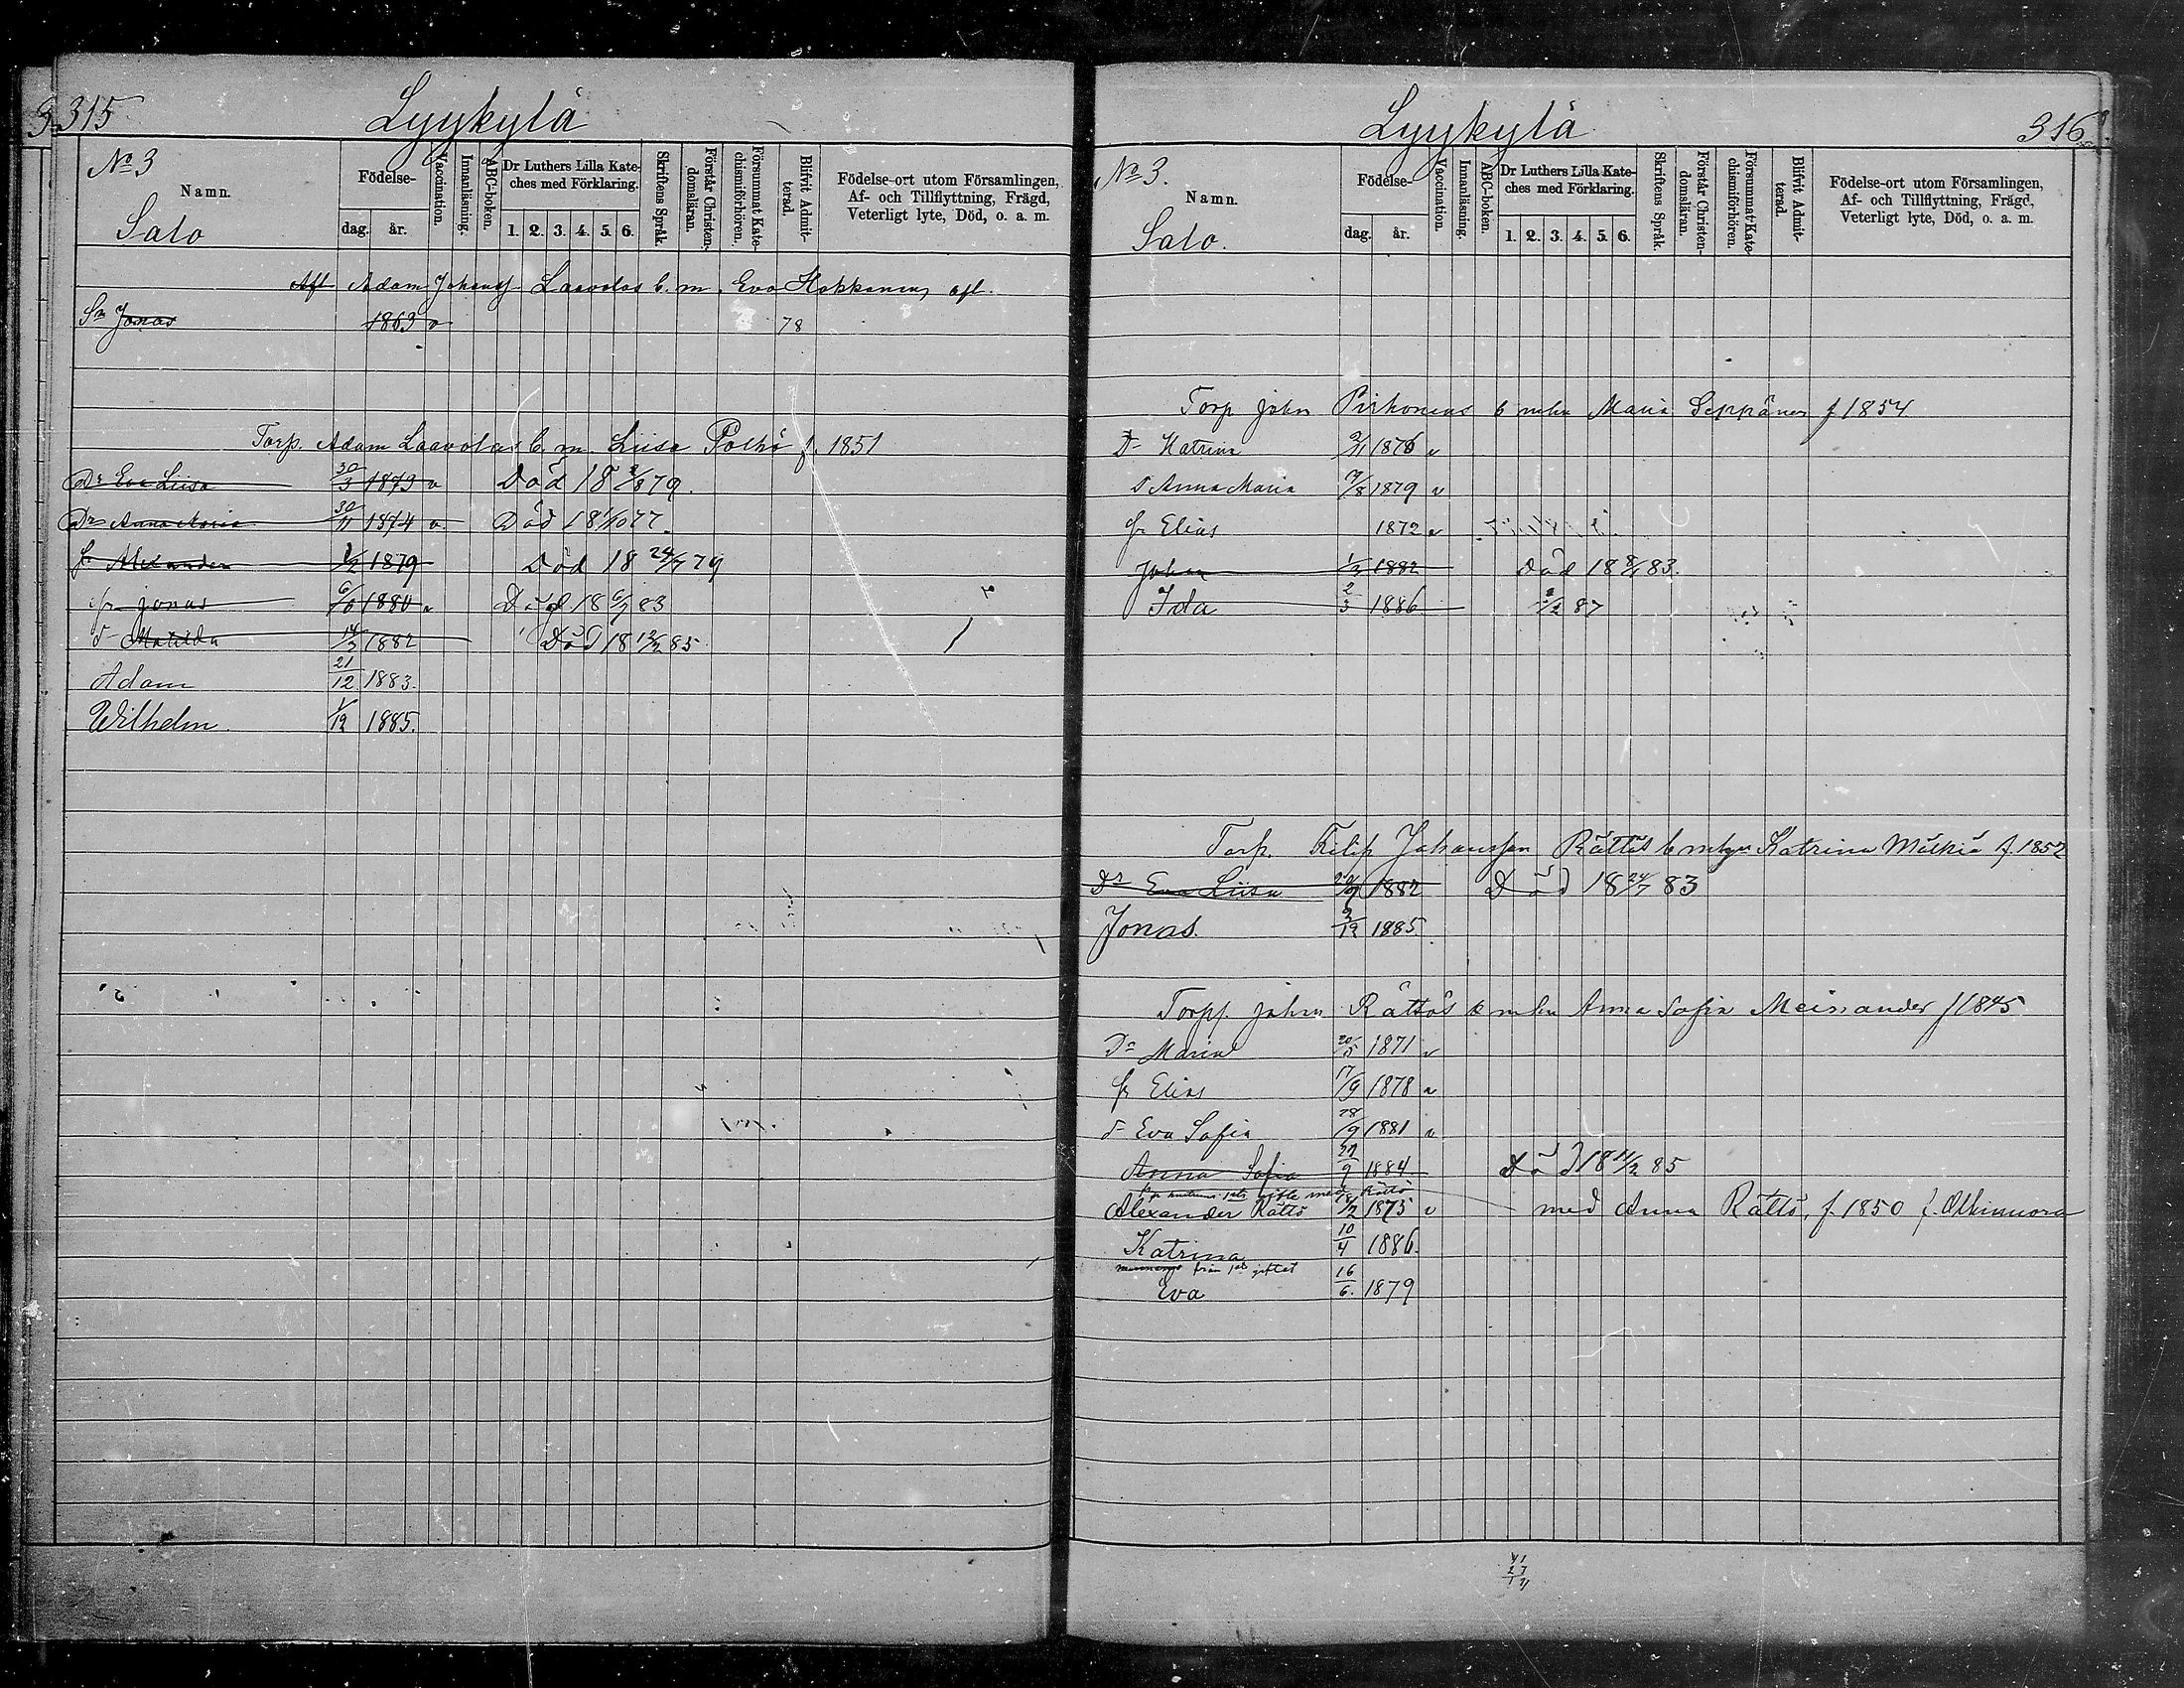 315
Lyykylä
No 3
Namn.
Salo
Födelse-
dag.
år.
Vaccination.
Innanläsning.
ABC-boken.
Dr Luthers Lilla Kate-
ches med Förklaring.
1. 2. 3. 4. 5. 6.
Skriftens Språk.
Förstår Christen-
domsläran.
Försummat Kate-
chismiförhören.
Blifvit Admit-
terad.
Födelse-ort utom Församlingen,
Af- och Tillflyttning, Frägd,
Veterligt lyte, Död, o. a. m.
Afl Adam Johanss Laavolas b. m. Eva Hakkanen afl.
Sn Jonas 1863 v 78
Torp. Adam Laavolas b. m. Liisa Pölhö f. 1851
Dr Eva Liisa 30/3 1873 v Död 18 2/8 79.
Dr Anna Maria 30/11 1874 v Död 18 1/10 77.
Alexander 1/2 1879 Död 18 24/7 79
Jonas 6/6 1880 v Död 18 6/7 83
d Matilda 14/3 1882 Död 18 12/2 85
Adam 21/12 1883.
Wilhelm 1/12 1885.
Lyykylä
316
No 3.
Namn.
Salo.
Födelse-
dag.
år.
Vaccination.
Innanläsning.
ABC-boken.
Dr Luthers Lilla Kate-
ches med Förklaring.
1. 2. 3. 4. 5. 6.
Skriftens Språk.
Förstår Christen-
domsläran.
Försummat Kate-
chismiförhören.
Blifvit Admit-
terad.
Födelse-ort utom Församlingen,
Af- och Tillflyttning, Frägd,
Veterligt lyte, Död, o. a. m.
Torp John Pirhonens b mhu Maria Seppänen f 1854
Dr Katrina 2/11 1876 v
d Anna Maria 7/8 1879 v
Elias 1872 v
Johan 1882 Död 18 8/1 83.
Ida 2/3 1886 2/2 87
Torp. Filip Johansson Rättös b Katrina Mälkiä f. 1852
Dr Eva Liisa 1882 Död 18 24/7 83
Jonas. 3/12 1885.
Torpp. John Rättös b mhu Anna Sofia Meinander f 1845
Dr Maria 20/5 1871 v
Elias 17/9 1878 v
d Eva Sofia 28/9 1881 v
Anna Sofia 27/9 1884 Död 18 11/2 85
1sta gifte med Rättö
Alexander Rättö 18/2 1875 v med Anna Rättö, f. 1850 f. Olkinuora
Katrina 10/4 1886.
från 1sta giftet
Eva 16/6. 1879